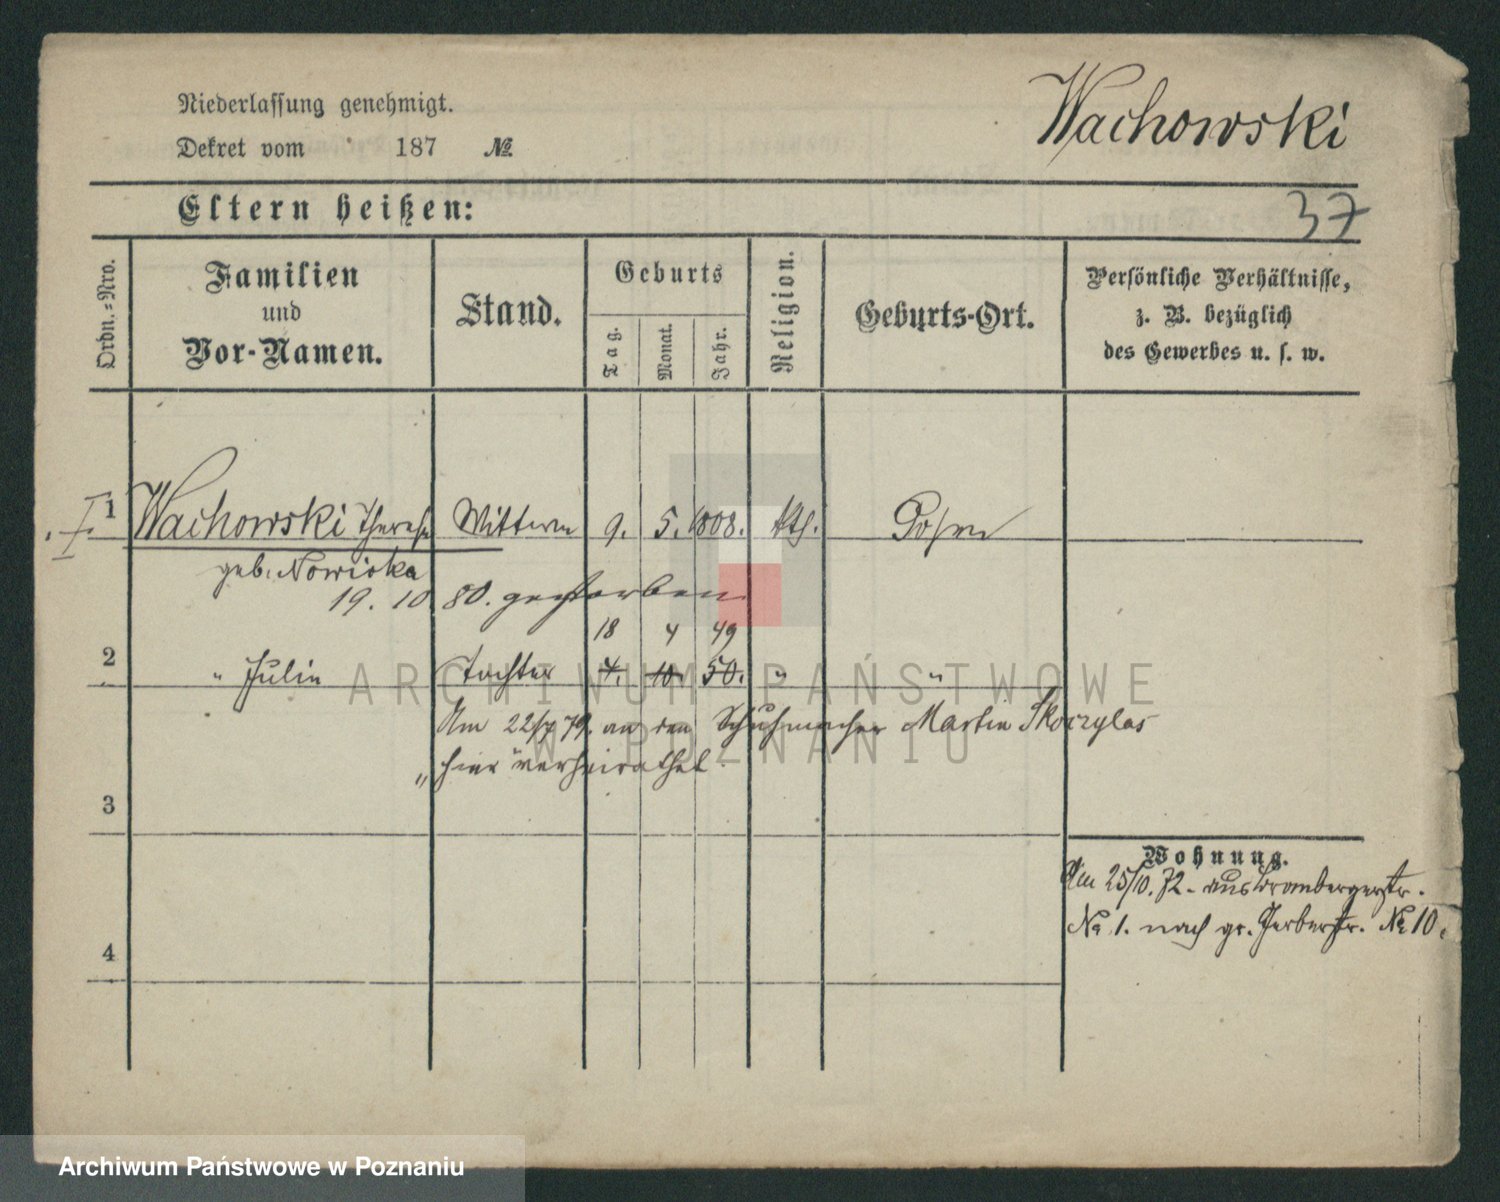 Niederlassung genehmigt.
Dekret vom 187 №
Wachowski
37
Eltern heißen:
Ordn.-Nro.
Familien und Vor-Namen.
Stand.
Geburts
Tag.
Monat.
Jahr.
Religion.
Geburts-Ort.
Persönliche Verhältnisse,
z. B. bezüglich
des Gewerbes u. s. w.
I. 1 Wachowski Therese Wittwe 9. 5. 1808. kth. Posen
geb. Nowicka
19. 10 80. gestorben
18 4 49
2 " Julie Tochter 4. 10. 50. " "
Am 22/7 79. an den Schuhmacher Martin Skoczylas
" hier verheirathet.
3
Wohnung.
Am 25/10. 72. aus Brombergerstr.
№ 1. nach gr. Gerberstr. № 10.
4
ARCHIWUM PAŃSTWOWE
W POZNANIU
Archiwum Państwowe w Poznaniu